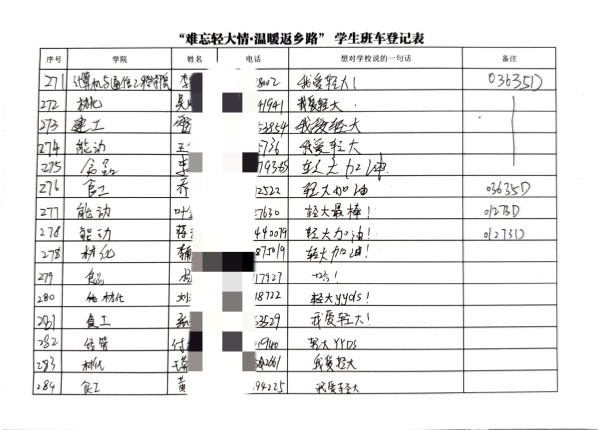 “难忘轻大情·温暖返乡路” 学生班车登记表
序号 学院 姓名 电话 想对学校说的一句话 备注
271 计算机与通信工程学院 李 我爱轻大! 03635D
272 材化 吴 41941 我爱轻大
273 建工 我爱轻大
274 能动 王 我爱轻大
275 食品 轻大加油
276 食工 乔 12522 轻大加油 03635D
277 能动 叶 27630 轻大最棒! 01273D
278 能动 蒋 440079 轻大加油! 01273D
278 材化 875019 轻大加油!
279 食品 杨 17927
280 材化 刘 18722 轻大yyds!
281 食工 孙 63529 我爱轻大!
282 经管 付 轻大YYDS
283 材化 我爱轻大
284 食工 黄 94225 我爱轻大